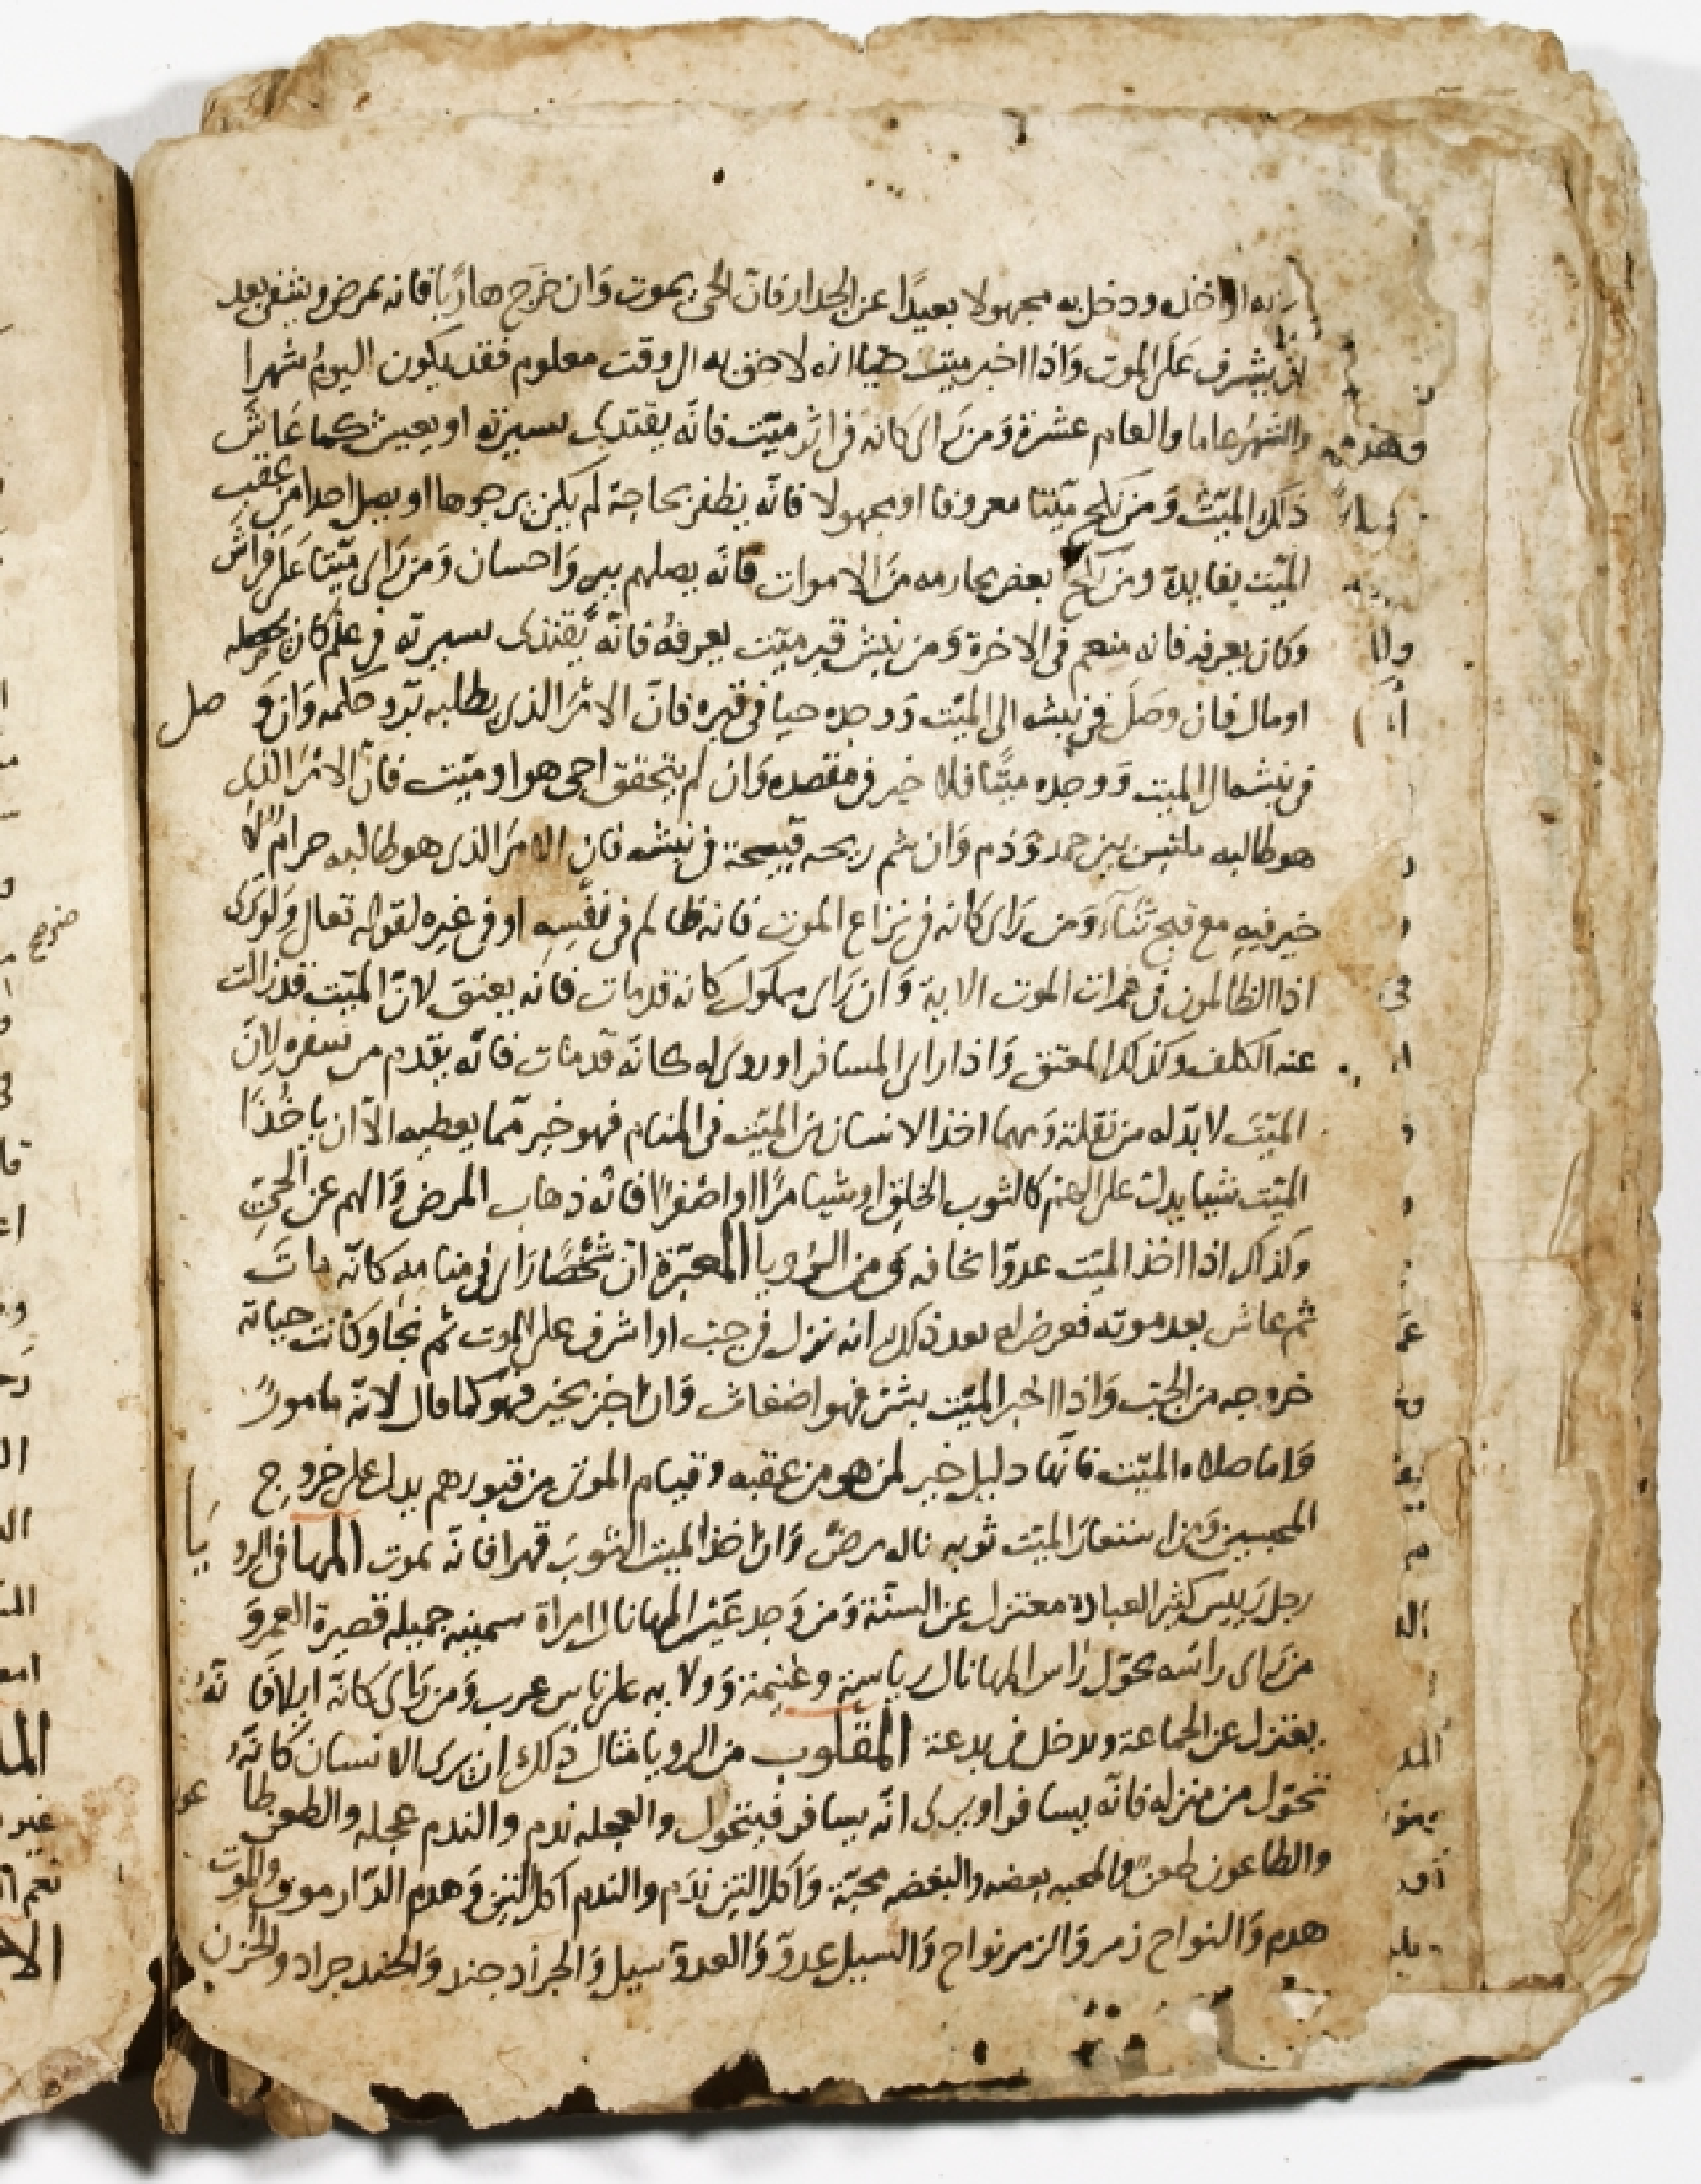 داره او اخذه ودخل به مجهولا بعيدًا عن الجدار فانّ الحىّ يموت وَان خَرَج هاربًا فانه يمرض ويشفى بعد
يشرف عَلَى الموت وَاذا اخبر ميت حيا انه لاحق به الى وقت معلوم فقد يكون اليومُ شهرا
والشهرُ عاما والعام عشرة وَمن رَاى كانه فى اثر ميّت فانّه يقتدى بسيرته او يعيش كما عَاش
ذَلك الميّت وَمن نكح ميّتا معروفا او مجهولا فانّه يظفر بحاجة لم يكن يرجوها او يصل احدا من عقب
الميّت بفايدة ومن نكح بعض محارمه من الاموات فانّه يصلهم ببر وَاحسان وَمن رَاى ميّتا عَلَى فراش
وكان يعرفه فانه منعم فى الاخرة وَمن نبش قبر ميّت يعرفهُ فانّه يقتدى بسيرته فى علم كان يحصله
او مال فان وصَلَ فى نبشه الى الميّت وَوجده حيا فى قبره فانّ الامْرَ الذى يطلبه تدو حكمه وَان وَ صل
فى نبشه الى الميت وَوجده ميتًا فلا خير فى مقصده وَان لم يتحقق احى هو او ميّت فانّ الامْرَ الذى
هو طالبه ملتبس بين حمد وَذم وَان شم ريحه قبيحة فى نبشه فان الامرَ الذى هو طالبه حرامٌ لا
خير فيهِ مع قبح ثنآء وَمن رَاى كانه فى نزاع الموت فانه ظالم فى نفسِهِ او فى غيره لقوله تعالى وَلو ترى
اذا الظالمون فى غمرات الموت الاية وَان رَاى مملوك كانه قد مات فانه يعتق لانّ الميّت قد زالت
عنه الكلف وكذلك المعتق وَاذا راى المسافر او روى له كانّه قد مات فانّه يقدم من سفره لانّ
الميّتَ لا بدّ له من نقلة وَمهما اخذ الانسان من الميّت فى المنام فهو خير ممّا يعطيه الا ان ياخُذا
الميّت شيا يدل على الهم كالثوب الخلِق او شيا مرًّا او اصْفرًا فانه ذهاب المرض وَالهم عن الحىّ
وَكذلك اذا اخذ الميّت عدوّا تخافه وَمن الرؤيا المعبّرة انّ شخْصًا رَاى فى منامه كانّه ماتَ
ثم عاش بعد موته فعرض له بعد ذلك انه نزل فى جب او اشرف على الموت ثم نجا وكانت حياته
خروجه من الجب وَاذا اخبر الميّت بشر فهو اضغاث وَان اخبر بخير فهو كما قال لانّه مامورٌ
وَاما صلاه الميّت فانّها دليل خير لمن هو من عقبه وقيام الموتى من قبورهم يدل على خروج
المحبسين وَمن استعارَ الميّت ثوبه ناله مرضٌ وَان اخذ الميت الثوبَ قهرا فانّه يموت المها فى الرو يا
رجل رَييس كثير العباده معتزل عن السنّة وَمن وَجد عَيْن المها نال امراة سمينه جميله قصيرة العمر وَ
من رَاى راسَه تحوّل رَاس المها نال رياسة وغنيمة وَولايه على ناس عرب وَمن رَاى كانّه ايلا فا نّهُ
يعتزل عن الجماعة ويدخل فى بدعة المقلوب من الرويا مثال ذلك ان يرى الانسان كانّهُ
تحوّل من منزله فانّه يسافر او يرى انّه يسافر فيتحول والعجله ندم والندم عجله والطعن طا عو
والطاعون طعن والمحبه بغضه والبغضه محبّة وَاكل التين ندَم والندم اكل التين وَهدم الدّار موت والموت
هدم وَالنواح زمر وَالزمر نواح وَالسيل عدوّ وَالعدوّ سيل وَالجرَاد جند وَالجند جراد والحزن